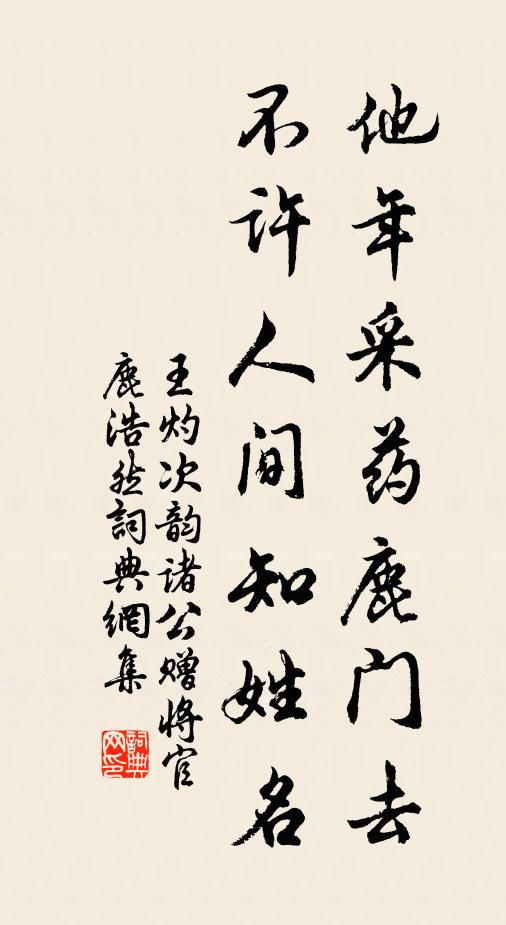 他年采药鹿门去
不许人间知姓名
王灼次韵诸公赠将官
鹿浩然詞典網集
詞典网印